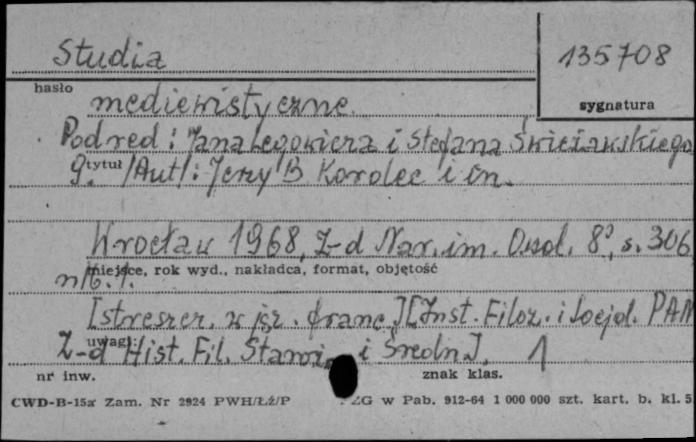 Studia
135708
hasło
mediewistyczne.
sygnatura
Pod red: Jana Legowicza i Stefana Świeżawskiego
9. tytuł /Aut/: Jerzy B Korolec i in.
Wrocław 1968, Z-d Nar. im. Ossol. 8°, s. 306
miejsce, rok wyd., nakładca, format, objętość
[streszcz. w jęz. franc.] [Inst. Filoz. i Socjol. PAN
uwagi:
Z-d Hist. Fil. Staroż. i Średn]. 1
nr inw.
znak klas.
CWD-B-15a Zam. Nr 2924 PWH/Łź/P ZG w Pab. 912-64 1 000 000 szt. kart. b. kl. 5